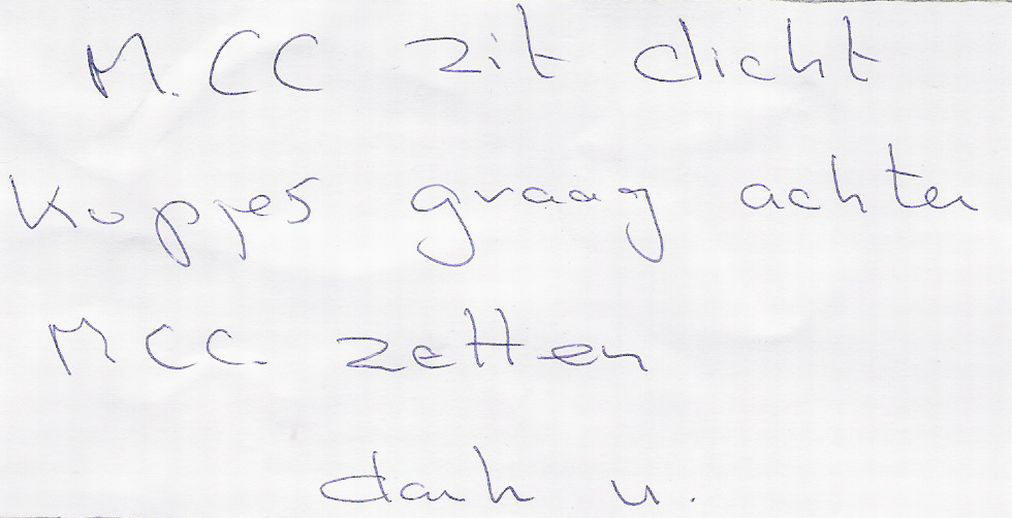 M.CC zit dicht
Kopjes graag achter
MCC. zetten
dank u.